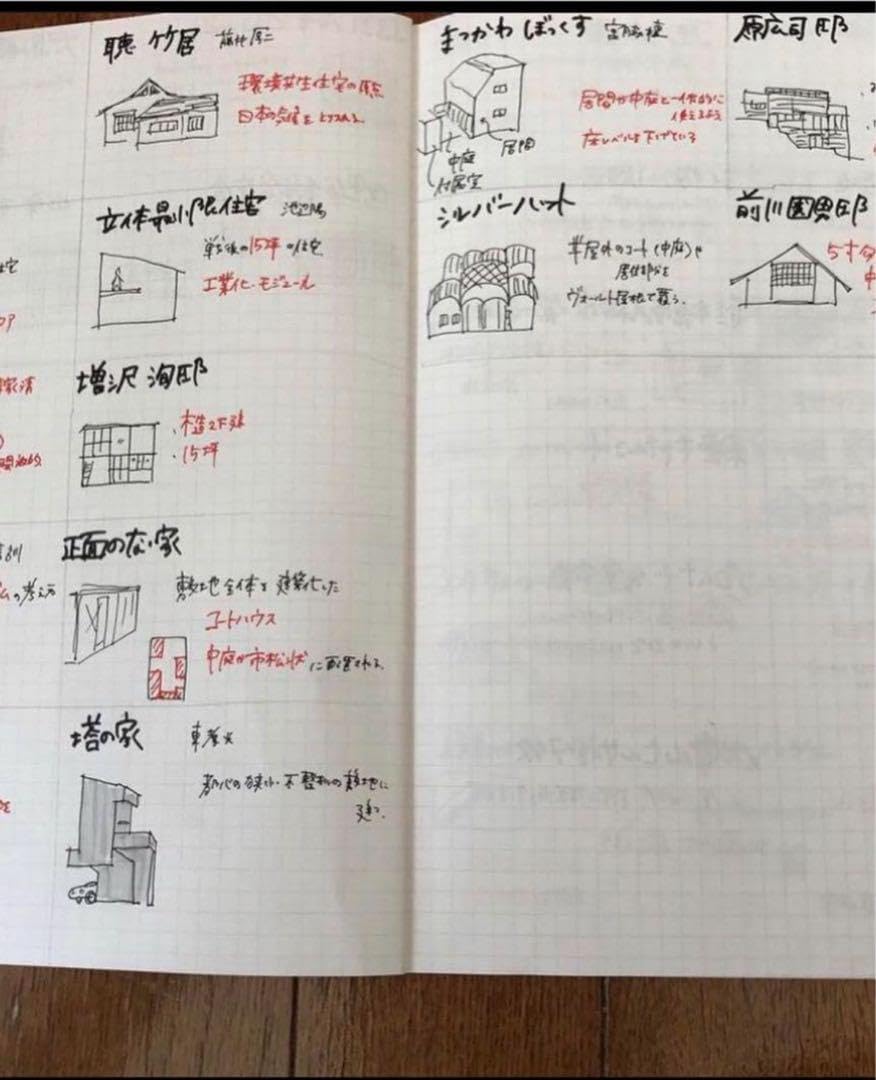 聴竹居 藤井厚二
環境共生住宅の原点
日本の気候を
立体最小限住宅 池辺陽
戦後の15坪の住宅
工業化・モジュール
増沢洵邸
・木造2F建
・15坪
正面のない家
敷地全体を建築化した
コートハウス
中庭が市松状に配置される
塔の家 東孝光
都心の狭小・不整形の敷地に
建つ
まつかわぼっくす 宮脇檀
居間が中庭と一体的に
使えるよう
床レベルを下げている
居間
中庭
付属室
シルバーハット
半屋外のコート(中庭)や
居住部分を
ヴォールト屋根で覆う.
原広司邸
前川國男邸
5寸
中
の考え方